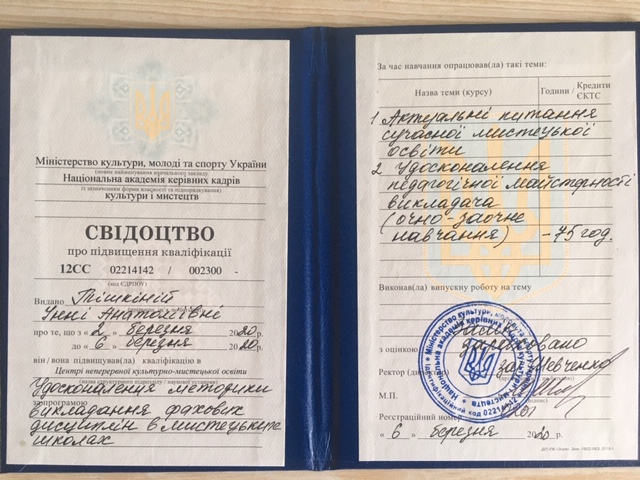 Міністерство культури, молоді та спорту України
(повне найменування навчального закладу)
Національна академія керівних кадрів
(із зазначенням форми власності та підпорядкування)
культури і мистецтв
СВІДОЦТВО
про підвищення кваліфікації
12СС 02214142 / 002300 -
(код ЄДРПОУ)
Видано Тішкіній
Інні Анатоліївні
про те, що з « 2 » березня 2020 р.
до « 6 » березня 2020 р.
він / вона підвищував(ла) кваліфікацію в
Центрі неперервної культурно-мистецької освіти
Удосконалення методики
за програмою
викладання фахових
дисциплін в мистецьких
школах
За час навчання опрацював(ла) такі теми:
Назва теми (курсу) Години / Кредити ЄКТС
1 Актуальні питання
сучасної мистецької
освіти
2 Удосконалення
педагогічної майстерності
викладача
(очно-заочне
навчання) - 75 год.
Виконав(ла) випускну роботу на тему
з оцінкою зараховано
Ректор Шевченко
М.П.
(підпис)
Реєстраційний номер
« 6 » березня 2020 р.